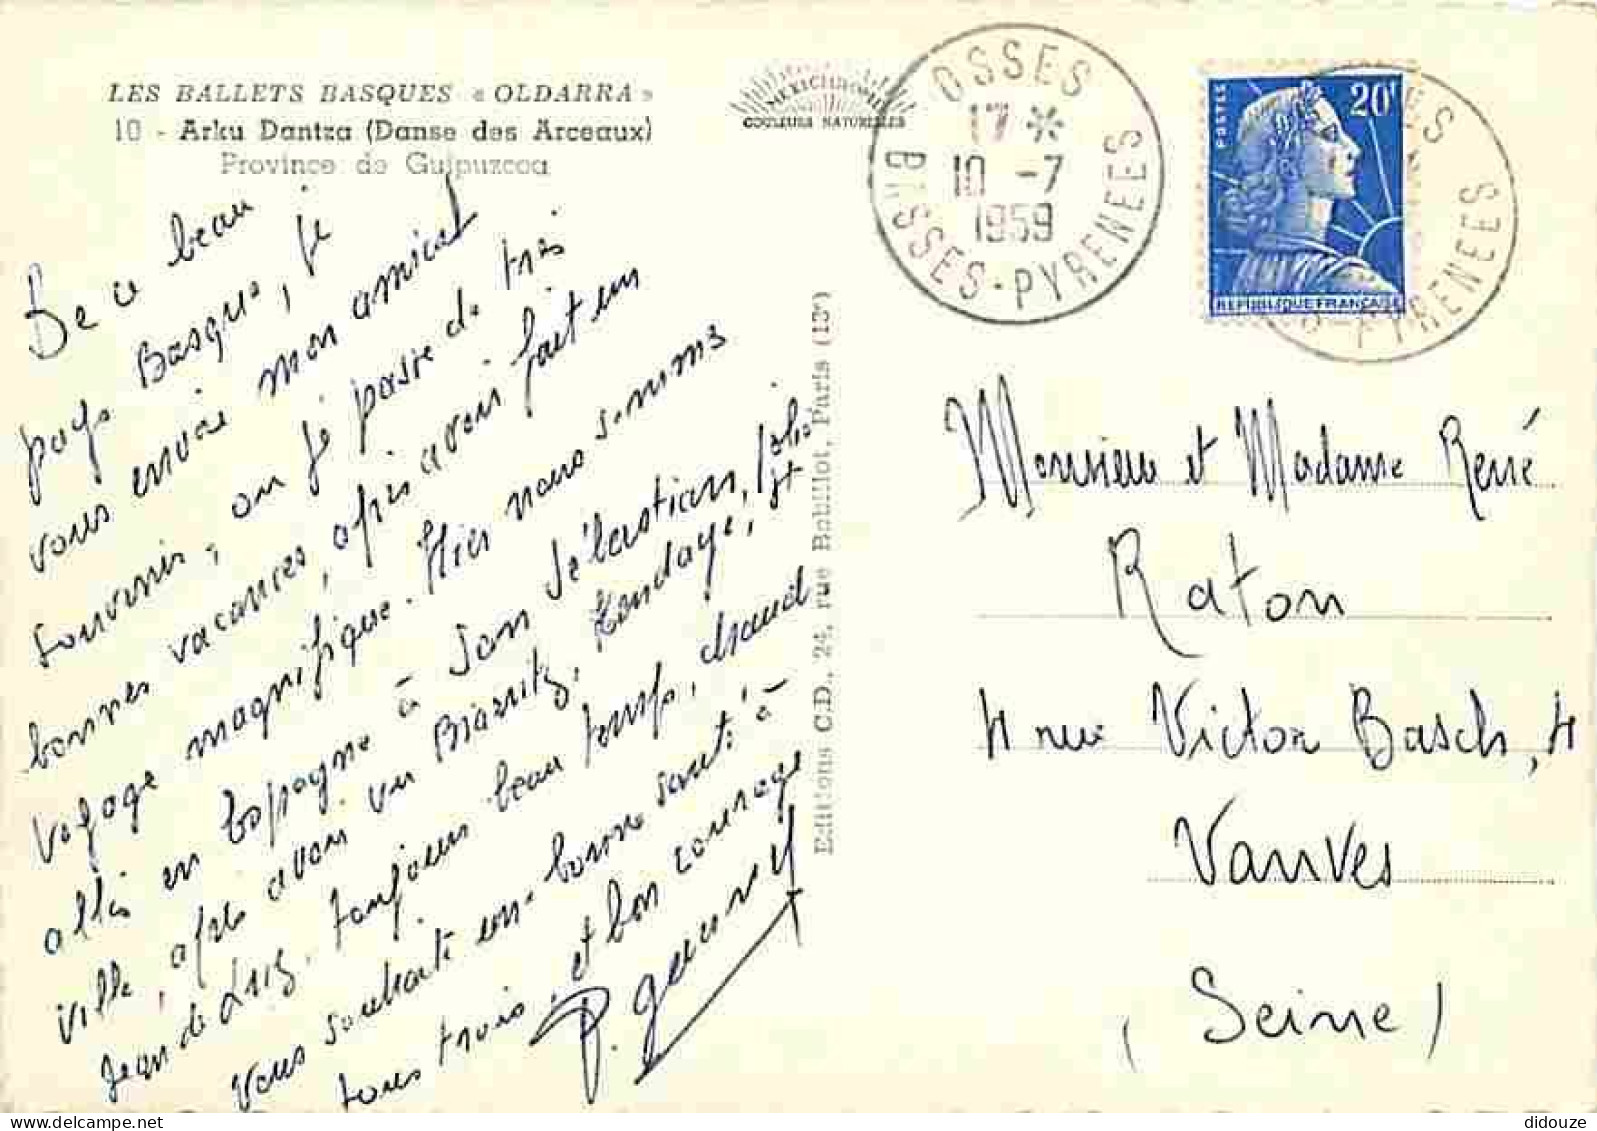 LES BALLETS BASQUES « OLDARRA »
10 - Arku Dantza (Danse des Arceaux)
Province de Guipuzcoa
MEXICHROME
COULEURS NATURELLES
OSSES
17 *
10 -7
1959
BASSES-PYRENEES
POSTES
20F
REPUBLIQUE FRANÇAISE
De ce beau
pays Basque, je
vous envoie mon amical
souvenir, où je passe de très
bonnes vacances, après avoir fait un
voyage magnifique. Hier nous sommes
allés en Espagne à San Sébastian, jolie
ville, après avoir vu Biarritz, Hendaye, St
Jean de Luz. Toujours beau temps, chaud
Vous souhaite une bonne santé à
tous trois, et bon courage
Editions C.D., 24, rue Bobillot, Paris (13e)
Monsieur et Madame René
Raton
4 rue Victor Basch, 4
Vanves
(Seine)
didouze